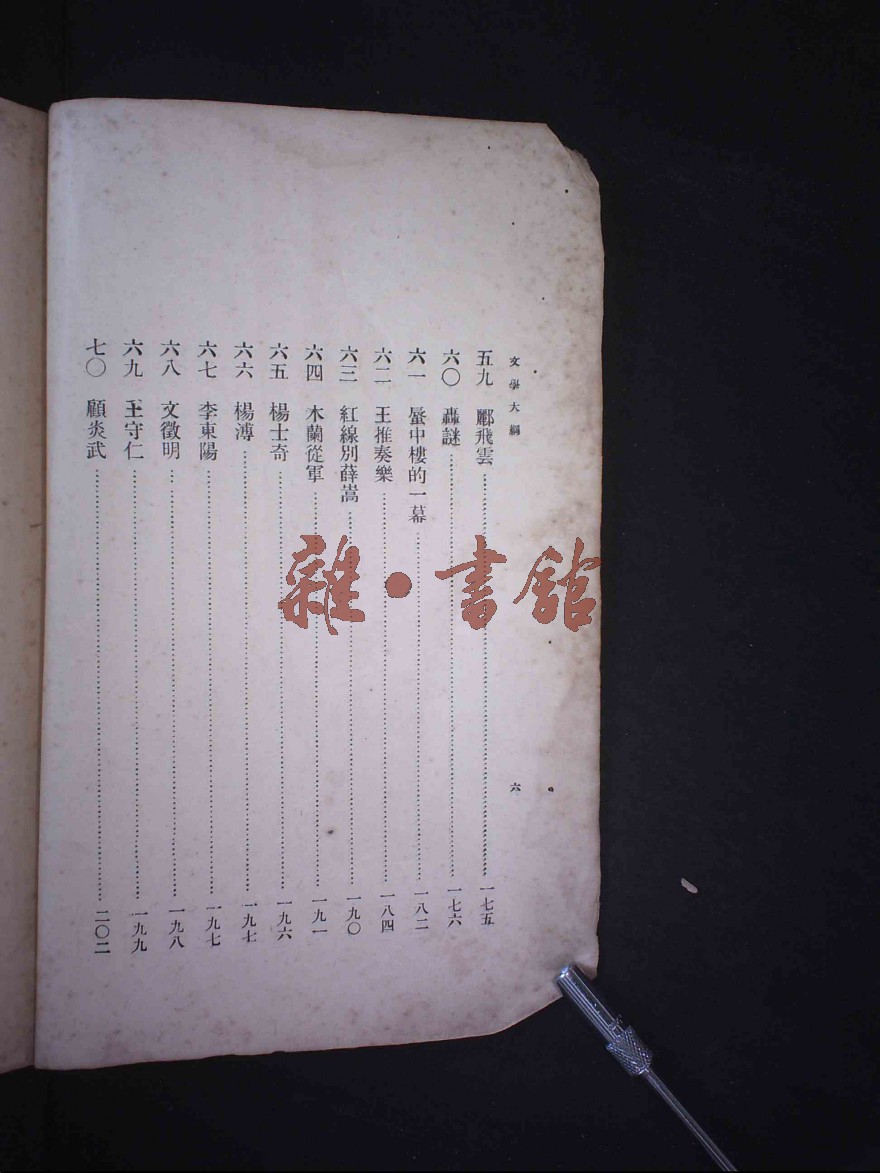 文學大綱
六
五九　酈飛雲……一七五
六〇　轟謎……一七六
六一　蜃中樓的一幕……一八二
六二　王推奏樂……一八四
六三　紅線別薛嵩……一九〇
六四　木蘭從軍……一九一
六五　楊士奇……一九六
六六　楊溥……一九七
六七　李東陽……一九七
六八　文徵明……一九八
六九　王守仁……一九九
七〇　顧炎武……二〇二
雜·書館